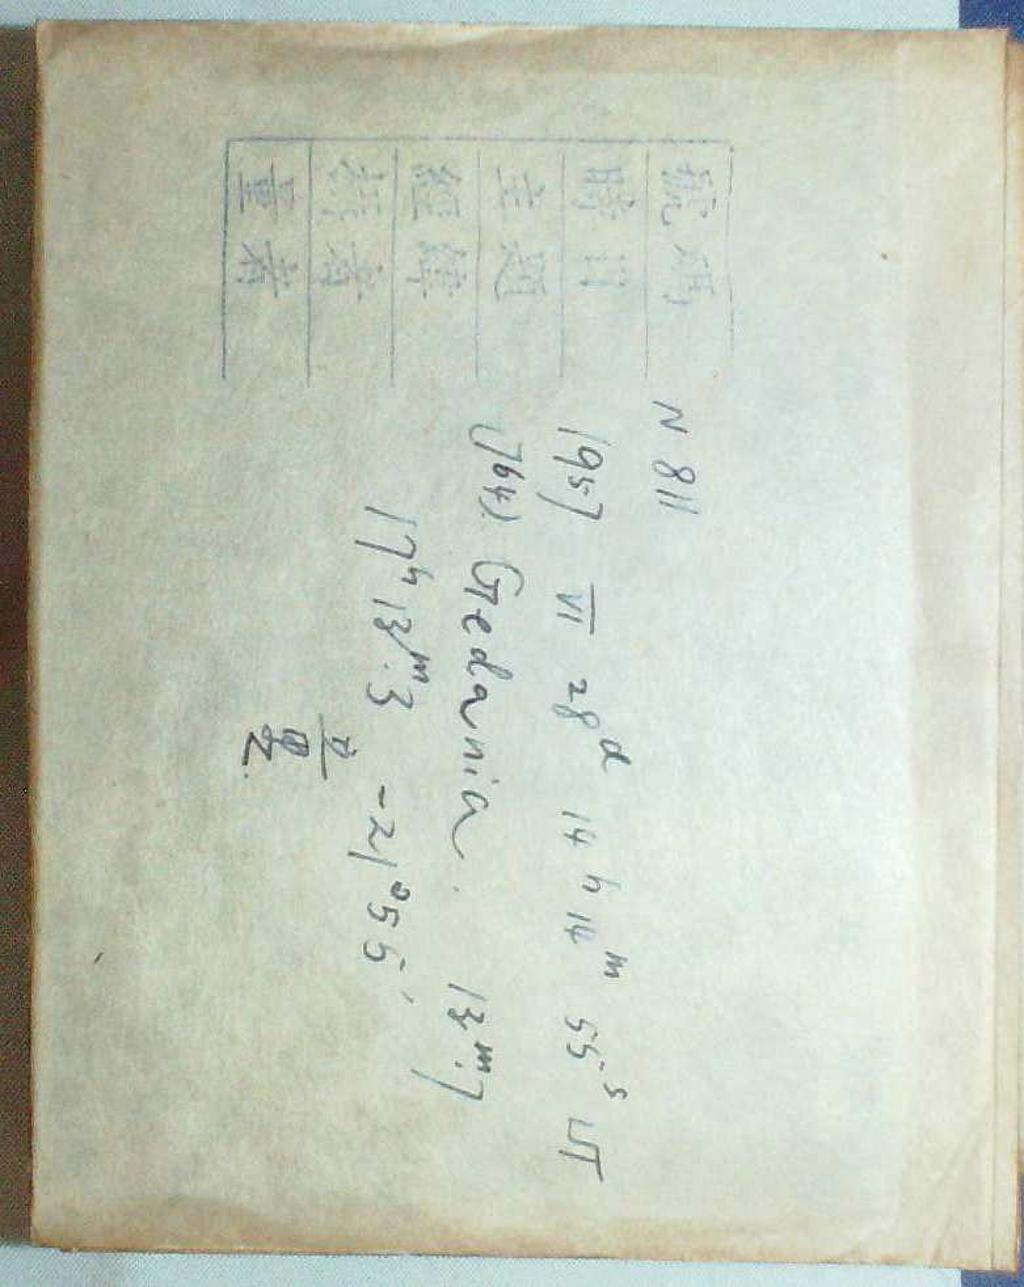 號碼 N 811
時日 1957 VI 28d 14h 14m 55s UT
主題 (764) Gedania. 13m.7
經緯 17h13m.3 -21°55'
攝者
量者